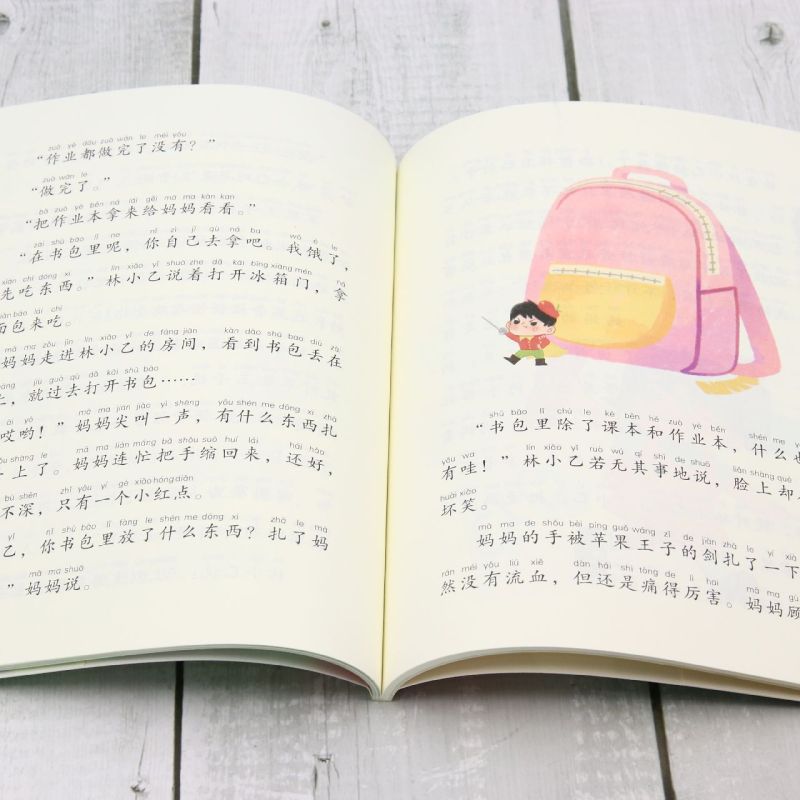 zuò yè dōu zuò wán le méi yǒu
“作业都做完了没有？”
zuò wán le
“做完了。”
bǎ zuò yè běn ná lái gěi mā ma kàn kan
“把作业本拿来给妈妈看看。”
zài shū bāo lǐ ne nǐ zì jǐ qù ná ba wǒ è le
“在书包里呢，你自己去拿吧。我饿了，
xiān chī dōng xi lín xiǎo yǐ shuō zhe dǎ kāi bīng xiāng mén ná
先吃东西。”林小乙说着打开冰箱门，拿
miàn bāo lái chī
面包来吃。
mā ma zǒu jìn lín xiǎo yǐ de fáng jiān kàn dào shū bāo diū zài
妈妈走进林小乙的房间，看到书包丢在
shàng jiù guò qù dǎ kāi shū bāo
上，就过去打开书包……
āi yō mā ma jiān jiào yì shēng yǒu shén me dōng xi zhā
哎哟！”妈妈尖叫一声，有什么东西扎
shǒu shàng le mā ma lián máng bǎ shǒu suō huí lái hái hǎo
手上了。妈妈连忙把手缩回来，还好，
bù shēn zhǐ yǒu yí gè xiǎo hóng diǎn
不深，只有一个小红点。
yǐ nǐ shū bāo lǐ fàng le shén me dōng xi zhā le mā
乙，你书包里放了什么东西？扎了妈
mā ma shuō
”妈妈说。
shū bāo lǐ chú le kè běn hé zuò yè běn shén me yě
“书包里除了课本和作业本，什么也
yǒu wa lín xiǎo yǐ ruò wú qí shì de shuō liǎn shàng què
有哇！”林小乙若无其事地说，脸上却
huài xiào
坏笑。
mā ma de shǒu bèi píng guǒ wáng zǐ de jiàn zhā le yí xià
妈妈的手被苹果王子的剑扎了一下
rán méi yǒu liú xiě dàn hái shì tòng de lì hai mā ma gù
然没有流血，但还是痛得厉害。妈妈顾